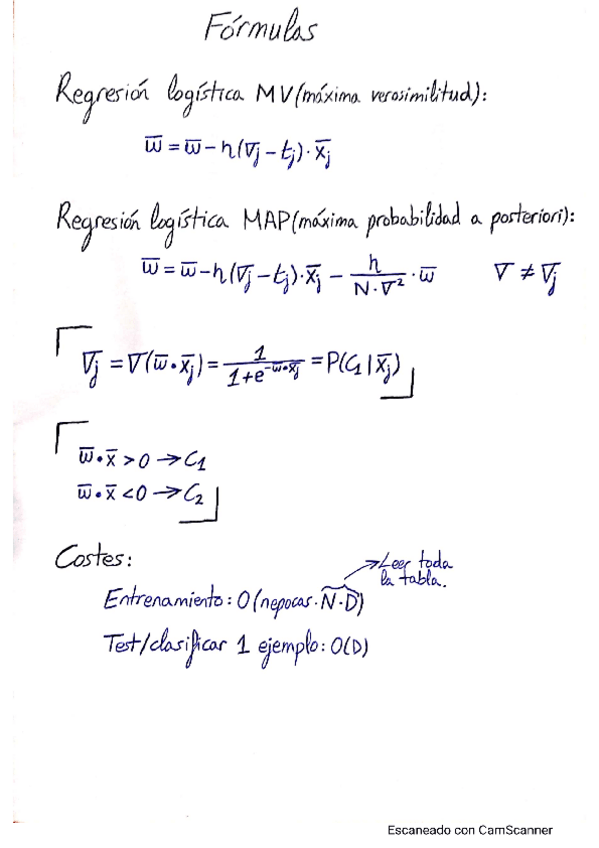 Fórmulas
Regresión logística MV (máxima verosimilitud):
w̅ = w̅ - η(∇j - tj)·x̅j
Regresión logística MAP (máxima probabilidad a posteriori):
w̅ = w̅ - η(∇j - tj)·x̅j - η/(N·∇²)·w̅ ∇ ≠ ∇j
∇j = ∇(w̅·x̅j) = 1/(1+e^(-w̅·x̅j)) = P(C1|x̅j)
w̅·x̅ > 0 → C1
w̅·x̅ < 0 → C2
Costes:
→ Leer toda
la tabla.
Entrenamiento: O(nepocas·N·D)
Test/clasificar 1 ejemplo: O(D)
Escaneado con CamScanner